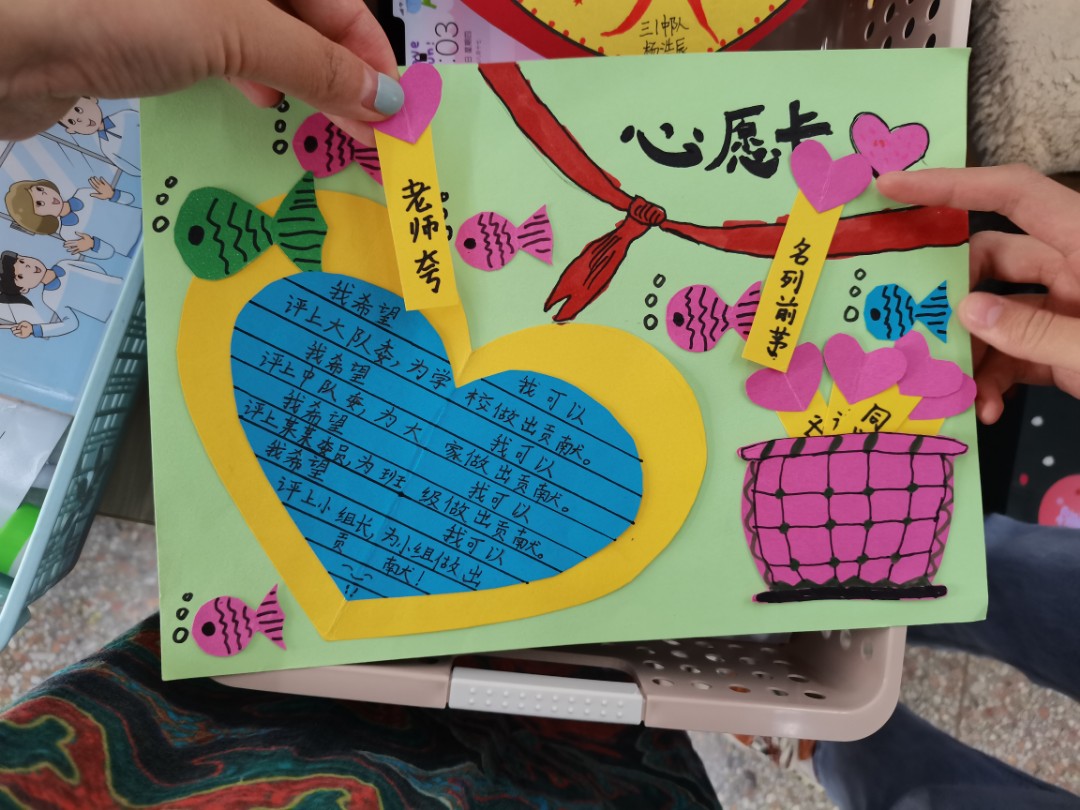 三1中队
03
心愿卡
老师夸
名列前茅
我希望
评上大队委，为学校做出贡献。
我可以
我希望
评上中队委，为大家做出贡献。
我可以
我希望
评上某某委员，为班级做出贡献。
我可以
我希望
评上小组长，为小组做出
我可以
贡献！
同